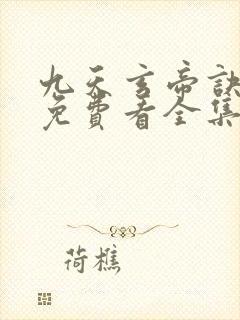 九天玄帝訣
免費看全集
荷樵